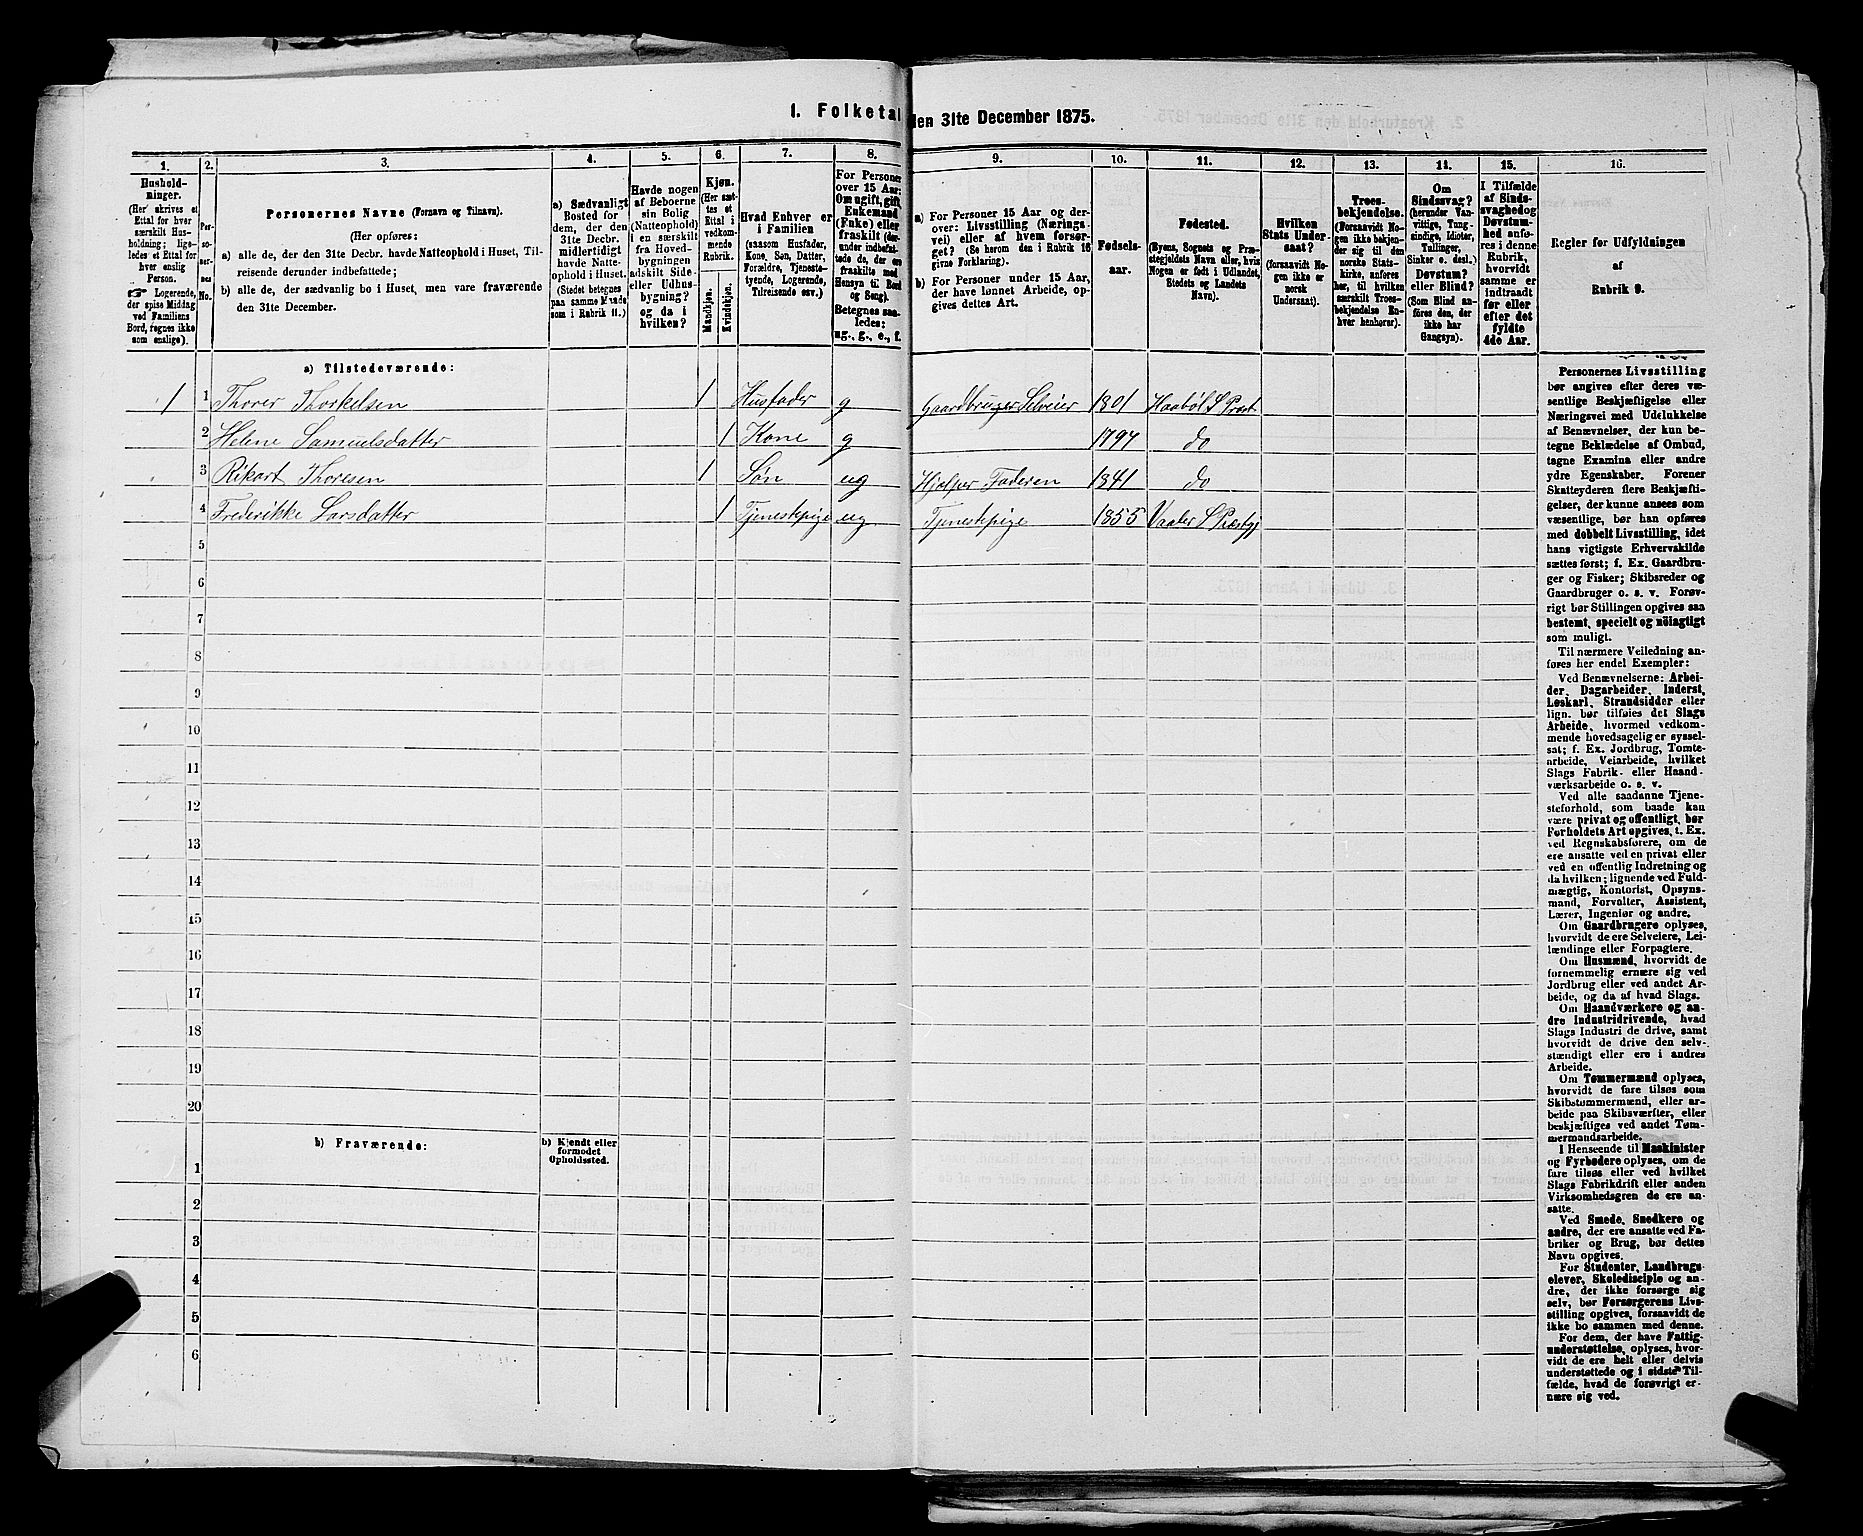 1. Folketal den 31te December 1875.
1. 2. 3. 4. 5. 6. 7. 8. 9. 10. 11. 12. 13. 14. 15. 16.
Hushold-
ninger.
(Her skrives et
Ettal for hver
særskilt Hus-
holdning; lige-
ledes et Ettal for
hver enslig
Person.
☞ Logerende,
der spise Middag
ved Familiens
Bord, regnes ikke
som enslige).
Per-
so-
ner-
nes
No.
Personernes Navne (Fornavn og Tilnavn).
(Her opføres:
a) alle de, der den 31te Decbr. havde Natteophold i Huset, Til-
reisende derunder indbefattede;
b) alle de, der sædvanlig bo i Huset, men vare fraværende
den 31te December.
a) Sædvanligt
Bosted for
dem, der den
31te Decbr.
midlertidigt
havde Natte-
ophold i Huset.
(Stedet betegnes
paa samme Maade
som i Rubrik 11.)
Havde nogen
af Beboerne
sin Bolig
(Natteophold)
i en særskilt
fra Hoved-
bygningen
adskilt Side-
eller Udhus-
bygning?
og da i
hvilken?
Kjøn.
(Her sæt-
tes et
Ettal i
vedkom-
mende
Rubrik.
Mandkjøn.
Kvindekjøn.
Hvad Enhver er
i Familien
(saasom Husfader,
Kone, Søn, Datter,
Forældre, Tjeneste-
tyende, Logerende,
Tilreisende osv.)
For Personer
over 15 Aar:
Om ugift, gift,
Enkemand
(Enke) eller
fraskilt (der-
under indbefat-
tede de, der ere
fraskilte med
Hensyn til Bord
og Seng).
Betegnes saa-
ledes:
ug., g., e., f.
a) For Personer 15 Aar og der-
over: Livsstilling (Nærings-
vei) eller af hvem forsør-
get? (Se herom den i Rubrik 16
givne Forklaring).
b) For Personer under 15 Aar,
der have lønnet Arbeide, op-
gives dettes Art.
Fødsels-
aar.
Fødested.
(Byens, Sognets og Præ-
stegjeldets Navn eller, hvis
Nogen er født i Udlandet,
Stedets og Landets
Navn).
Hvilken
Stats Under-
saat?
(forsaavidt No-
gen ikke er
norsk
Undersaat).
Troes-
bekjendelse.
(Forsaavidt No-
gen ikke bekjen-
der sig til den
norske Stats-
kirke, anføres
her, til hvilken
særskilt Troes-
bekjendelse En-
hver henhører).
Om
Sindssvag?
(herunder Van-
vittige, Tung-
sindige, Idioter,
Tullinger,
Sinker o. desl.)
Døvstum?
eller Blind?
(Som Blind an-
føres den, der
ikke har
Gangsyn).
I Tilfælde
af Sinds-
svaghed og
Døvstum-
hed anfø-
res i denne
Rubrik,
hvorvidt
samme er
indtraadt
før eller
efter det
fyldte
4de Aar.
Regler for Udfyldningen
af
Rubrik 9.
a) Tilstedeværende:
1 1 Thorer Thorkelsen 1 Husfader g Gaardbruger Selveier 1801 Haabøl S Præst
2 Helene Samuelsdatter 1 Kone g 1797 do
3 Rikart Thoresen 1 Søn ug Hjælper Faderen 1841 do
4 Frederikke Larsdatter 1 Tjenestepige ug Tjenestepige 1855 Vaaler S Præstgj
5
6
7
8
9
10
11
12
13
14
15
16
17
18
19
20
b) Fraværende:
b) Kjendt eller
formodet
Opholdssted.
1
2
3
4
5
6
Personernes Livsstilling
bør angives efter deres væ-
sentlige Beskjæftigelse eller
Næringsvei med Udelukkelse
af Benævnelser, der kun be-
tegne Beklædelse af Ombud,
tagne Examina eller andre
ydre Egenskaber. Forener
Skatteyderen flere Beskjæfti-
gelser, der kunne ansees som
væsentlige, bør han opføres
med dobbelt Livsstilling, idet
hans vigtigste Erhvervskilde
sættes først; f. Ex. Gaardbru-
ger og Fisker; Skibsreder og
Gaardbruger o. s. v. Forøv-
rigt bør Stillingen opgives saa
bestemt, specielt og nøiagtigt
som muligt.
Til nærmere Veiledning an-
føres her endel Exempler:
Ved Benævnelserne: Arbei-
der, Dagarbeider, Inderst,
Løskarl, Strandsidder eller
lign. bør tilføies det Slags
Arbeide, hvormed vedkom-
mende hovedsagelig er syssel-
sat; f. Ex. Jordbrug, Tomte-
arbeide, Veiarbeide, hvilket
Slags Fabrik- eller Haand-
værksarbeide o. s. v.
Ved alle saadanne Tjene-
steforhold, som baade kan
være privat og offentligt, bør
Forholdets Art opgives, t. Ex.
ved Regnskabsførere, om de
ere ansatte ved en privat eller
ved en offentlig Indretning og
da hvilken; lignende ved Fuld-
mægtig, Kontorist, Opsyns-
mand, Forvalter, Assistent,
Lærer, Ingeniør og andre.
Om Gaardbrugere oplyses,
hvorvidt de ere Selveiere, Lei-
lændinge eller Forpagtere.
Om Husmænd, hvorvidt de
fornemmelig ernære sig ved
Jordbrug eller ved andet Ar-
beide, og da af hvad Slags.
Om Haandværkere og an-
dre Industridrivende, hvad
Slags Industri de drive, samt
hvorvidt de drive den selv-
stændigt eller ere i andres
Arbeide.
Om Tømmermænd oplyses,
hvorvidt de fare tilsøs som
Skibstømmermænd, eller ar-
beide paa Skibsværfter, eller
beskjæftiges ved andet Tøm-
mermandsarbeide.
I Henseende til Maskinister
og Fyrbødere oplyses, om de
fare tilsøs eller ved hvilket
Slags Fabrikdrift eller anden
Virksomhedsgren de ere an-
satte.
Ved Smede, Snedkere og
andre, der ere ansatte ved Fa-
briker og Brug, bør dettes
Navn opgives.
For Studenter, Landbrugs-
elever, Skoledisciple og an-
dre, der ikke forsørge sig
selv, bør Forsørgerens Livs-
stilling opgives, forsaavidt de
ikke bo sammen med denne.
For dem, der have Fattig-
understøttelse, oplyses, hvor-
vidt de ere helt eller delvis
understøttede og i sidste Til-
fælde, hvad de forøvrigt er-
nære sig ved.